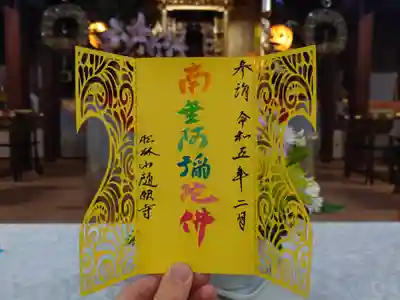 参詣 令和五年 二月
南無阿彌陀佛
松林山随願寺